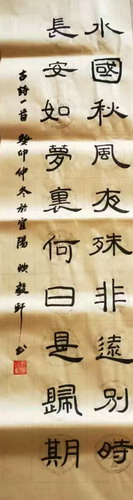 水國秋風夜殊非遠別時
長安如夢裏何日是歸期
古詩一首癸卯仲冬於宜陽